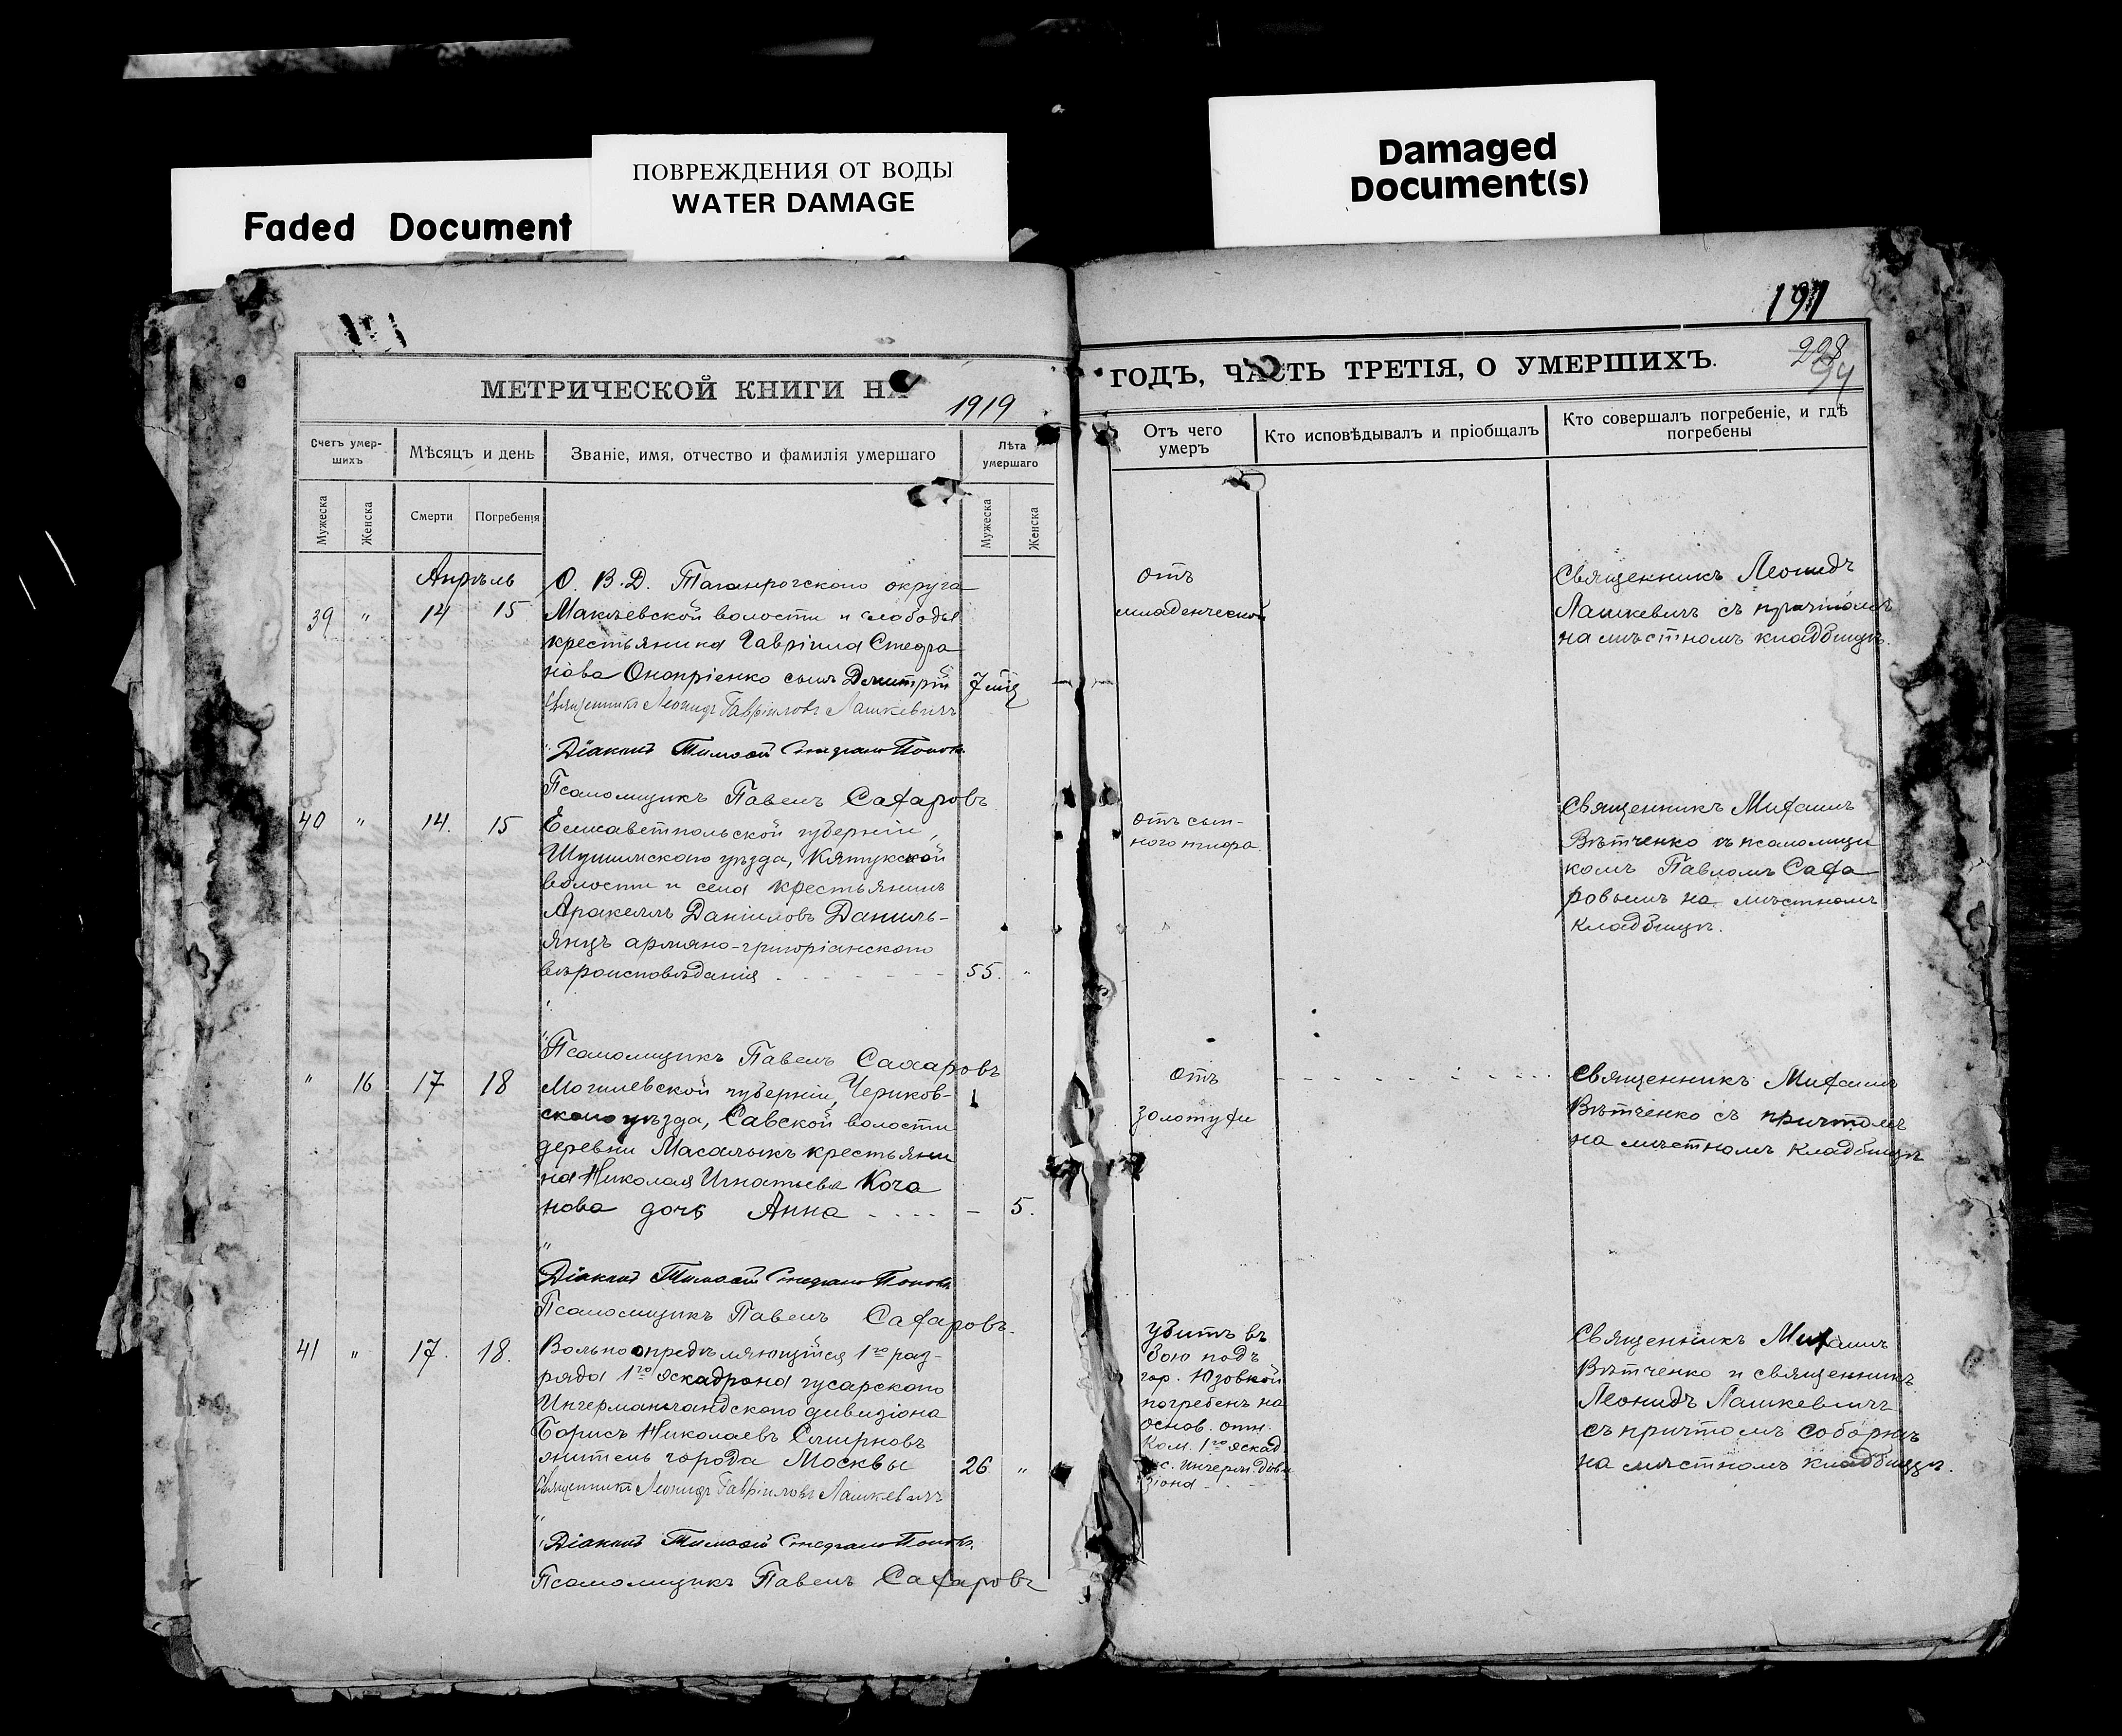 Faded Document
ПОВРЕЖДЕНИЯ ОТ ВОДЫ
WATER DAMAGE
Damaged
Document(s)
МЕТРИЧЕСКОЙ КНИГИ НА 1919
Счетъ умер-
шихъ
Мѣсяцъ и день
Званіе, имя, отчество и фамилія умершаго
Лѣта
умершаго
Мужеска
Женска
Смерти
Погребенія
Мужеска
Женска
Апрѣль
39 " 14 15
О. В. Д. Таганрогскаго округа
Макѣевской волости и слободы
крестьянина Гавріила Стефа
нова Онопріенко сынъ Дмитрій 7 мѣс
Священникъ Леонидъ Гавріиловъ Лашкевичъ
Діаконъ Тимоѳей Поповъ
Псаломщикъ Павелъ Сахаровъ
40 " 14. 15
Елисаветпольской губерніи,
Шушинскаго уѣзда, Кятукской
волости и села крестьянинъ
Аракеллъ Даніиловъ Даниль-
янцъ армяно-григоріанскаго
вѣроисповѣданія 55. "
Псаломщикъ Павелъ Сахаровъ
" 16 17 18
Могилевской губерніи, Чериков-
скаго уѣзда, Савской волости
деревни Масалыкъ крестьяни
на Николая Игнатьева Коча
нова дочь Анна - 5.
Діаконъ Тимоѳей Поповъ
Псаломщикъ Павелъ Сахаровъ.
41 " 17. 18.
Вольноопредѣляющійся 1го раз-
ряда 1го эскадрона гусарскаго
Ингерманландскаго дивизіона
Борисъ Николаевъ Смирновъ
житель города Москвы 26 "
Священникъ Леонидъ Гавріиловъ Лашкевичъ
Діаконъ Тимоѳей Поповъ.
Псаломщикъ Павелъ Сахаровъ
191
228
94
ГОДЪ, ЧАСТЬ ТРЕТІЯ, О УМЕРШИХЪ.
Отъ чего
умеръ
Кто исповѣдывалъ и пріобщалъ
Кто совершалъ погребеніе, и гдѣ
погребены
отъ
младенческой
Священникъ Леонидъ
Лашкевичъ съ причтомъ
на мѣстномъ кладбищѣ.
отъ сып-
ного тифа
Священникъ Михаилъ
Вѣтченко съ псаломщи
комъ Павломъ Саха
ровымъ на мѣстномъ
кладбищѣ.
отъ
золотухи
Священникъ Михаилъ
Вѣтченко съ причтомъ
на мѣстномъ кладбищѣ
убитъ въ
бою подъ
гор. Юзовкой
погребенъ на
основ. отн.
Ком. 1го эскад
Ингерм. диви
зіона
Священникъ Михаилъ
Вѣтченко и священникъ
Леонидъ Лашкевичъ
съ причтомъ соборнѣ
на мѣстномъ кладбищѣ.